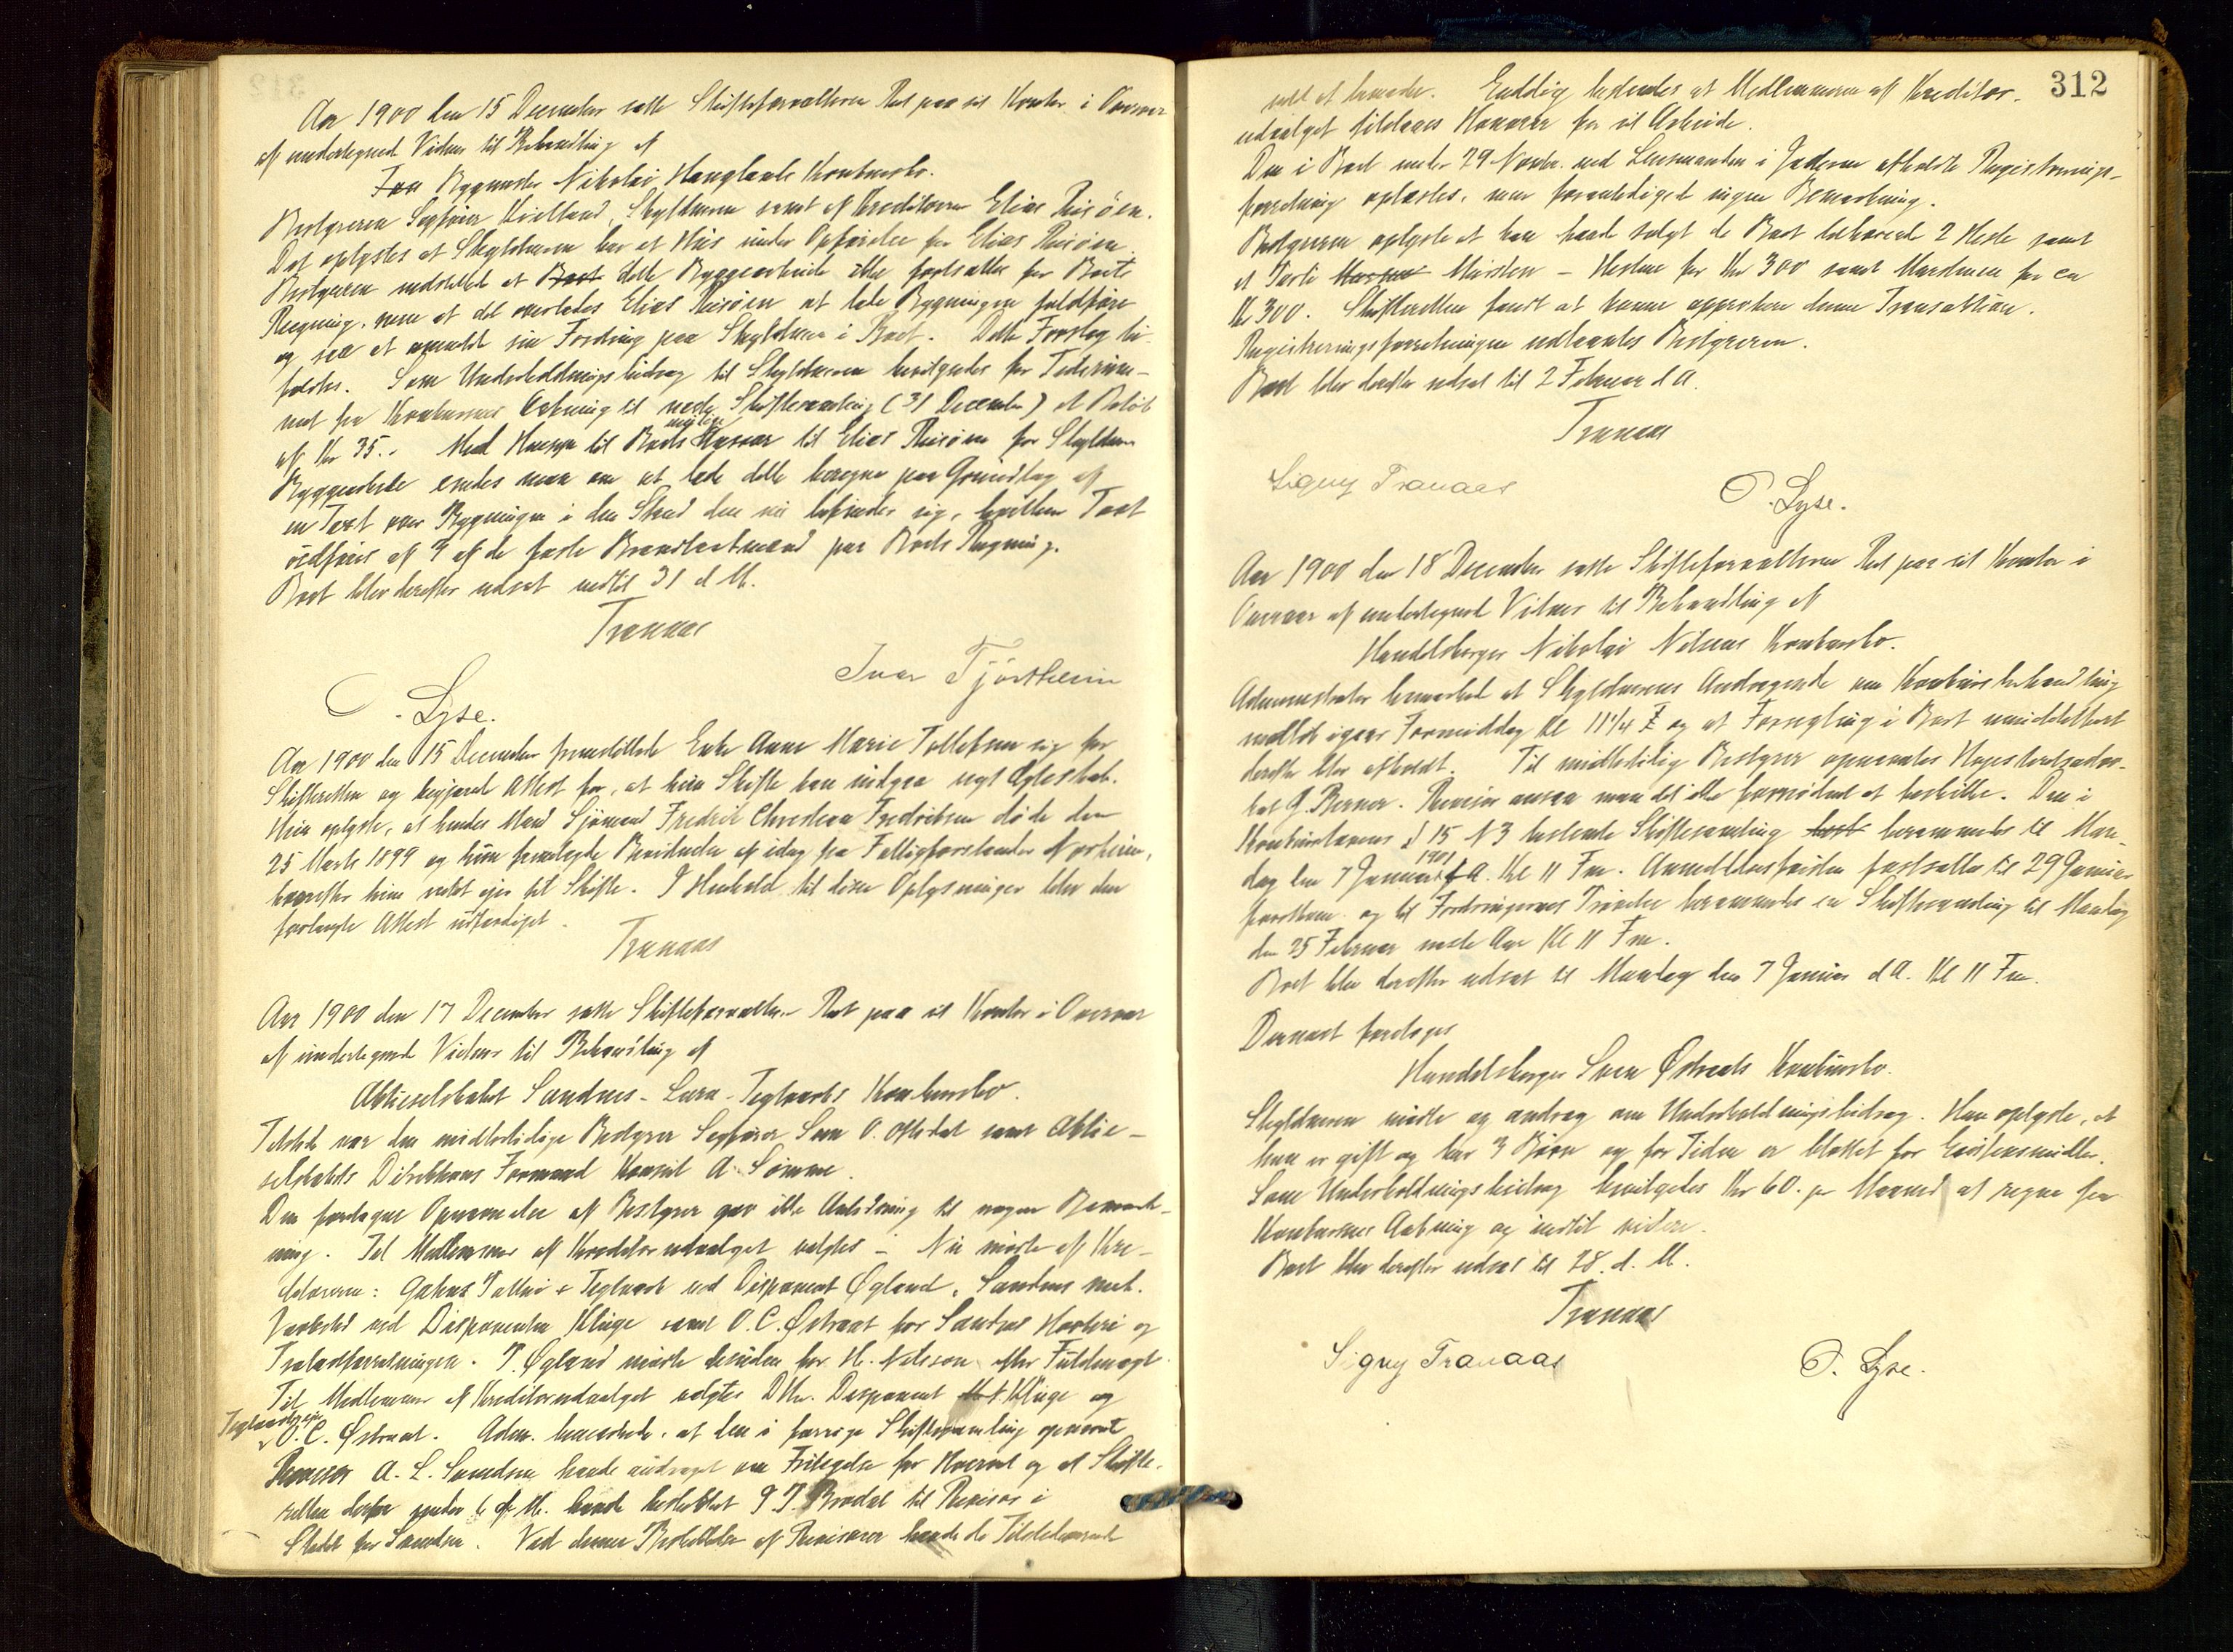 Aar 1900 den 15 December satte Skifteforvalteren Ret paa sit Kontor i Overvær
af undertegnede Vidner til Behandling af
Bygmester Nikolai Hauglands Konkursbo.
Bestyreren Sagfører Kielland, Skyldneren samt af Kreditorerne Elias Risøen.
Det oplystes at Skyldneren har et Hus under Opførelse for Elias Risøen.
Bestyreren indstillet at dette Byggearbeide ikke fortsættes for Boets
Regning, men at det overlades Elias Risøen at lade Bygningen fuldføre
og saa at anmelde sin Fordring paa Skyldneren i Boet. Dette Forslag bi-
faldtes. Som Underholdningsbidrag til Skyldneren bevilgedes for Tidsrum-
met fra Konkursens Aabning til næste Skiftesamling (31 December) et Beløb
af Kr 35.. Med Hensyn til Boets mulige Ansvar til Elias Risøen for Skyldnerens
Byggearbeide enedes man om at lade dette beregne paa Grundlag af
en Taxt over Bygningen i den Stand den nu befinder sig, hvilken Taxt
udføres af 4 af de faste Brandtaxtmænd paa Boets Regning.
Boet blev derefter udsat indtil 31 d M.
Tranaas
Ivar Tjøstheim
O. Lyse.
Aar 1900 den 15 December fremstillede Enke Anne Marie Tollefsen sig for
Skifteretten og begjærede Attest for, at hun Skifte kan indgaa nyt Ægteskab.
Hun oplyste, at hendes Mand Sjømand Fredrik Christian Fredriksen døde den
25 Marts 1899 og hun fremlagde Bevidnelse af idag fra Fattigforstander Norheim,
hvorefter hun intet ejer til Skifte. I Henhold til disse Oplysninger blev den
forlangte Attest udfærdiget.
Tranaas
Aar 1900 den 17 December satte Skifteforvalteren Ret paa sit Kontor i Overvær
af undertegnede Vidner til Behandling af
Aktieselskabet Sandnes-Lura-Teglværks Konkursbo.
Tilstede var den midlertidige Bestyrer Sagfører Sven O. Oftedal samt Aktie-
selskabets Direktions Formand Konsul A. Sømme.
Den foretagne Opnævnelse af Bestyrer gav ikke Anledning til nogen Bemærk-
ning. Til Medlemmer af Kreditorudvalget valgtes – Nu mødte af Kre-
ditorerne: Ganns Potteri & Teglværk ved Disponent Øgland, Sandnes mek.
Værksted ved Disponenten Kluge samt O. C. Østraat for Sandnes Høvleri og
Trælastforretningen. T. Øgland mødte desuden for H. Nilsson efter Fuldmagt.
Til Medlemmer af Kreditorudvalget valgtes DHr. Disponent Kluge og
Teglværkseier
O. C. Østraat. Adm. bemærkede, at den i forrige Skiftesamling opnævnte
Revisor A. L. Svendsen havde andraget om Fritagelse for Hvervet og at Skifte-
retten derfor under 6 d M. havde beskikket P. T. Brodal til Revisor i
Stedet for Svendsen. Ved denne Beskikkelse af Revisorer havde de Tilstedeværende
312
intet at bemærke. Endelig besluttedes at Medlemmerne af Kreditor-
udvalget tillægges Honorar for sit Arbeide.
Den i Boet under 29 Novbr. ved Lensmanden i Jæderen afholdte Registrerings-
forretning oplæstes, men foranledigede ingen Bemærkning.
Bestyreren oplyste at han havde solgt de Boet tilhørende 2 Heste samt
et Parti Mursten – Hestene for Kr 300 samt Murstenen for ca
Kr 300. Skifteretten fandt at kunne approbere denne Transaktion.
Registreringsforretningen udlaantes Bestyreren.
Boet blev derefter udsat til 2 Februar d A.
Tranaas
Signy Tranaas
O. Lyse.
Aar 1900 den 18 December satte Skifteforvalteren Ret paa sit Kontor i
Overvær af undertegnede Vidner til Behandling af
Handelsborger Nikolai Nilsens Konkursbo.
Administrator bemærkede at Skyldnerens Andragende om Konkursbehandling
indløb igaar Formiddag Kl 11 1/4 og at Forsegling i Boet umiddelbart
derefter blev afholdt. Til midlertidig Bestyrer opnævntes Høiesteretsadvo-
kat G. Berner. Revisor ansaa man det ikke fornødent at beskikke. Den i
Konkurslovens § 15 N 3 bestemte Skiftesamling berammedes til Man-
dag den 7 Januar 1901 Kl 11 Fm. Anmeldelsesfristen fastsattes til 29 Januar
førstkom. og til Fordringernes Prøvelse berammedes en Skiftesamling til Mandag
den 25 Februar næste Aar Kl 11 Fm.
Boet blev derefter udsat til Mandag den 7 Januar d A. Kl 11 Fm.
Dernæst foretoges
Handelsborger Sven Østraats Konkursbo.
Skyldneren mødte og androg om Underholdningsbidrag. Han oplyste, at
han er gift og har 3 Børn og for Tiden er blottet for Existensmidler.
Som Underholdningsbidrag bevilgedes Kr 60. pr Maaned at regne fra
Konkursens Aabning og indtil videre.
Boet blev derefter udsat til 28. d. M.
Tranaas
Signy Tranaas
O. Lyse.